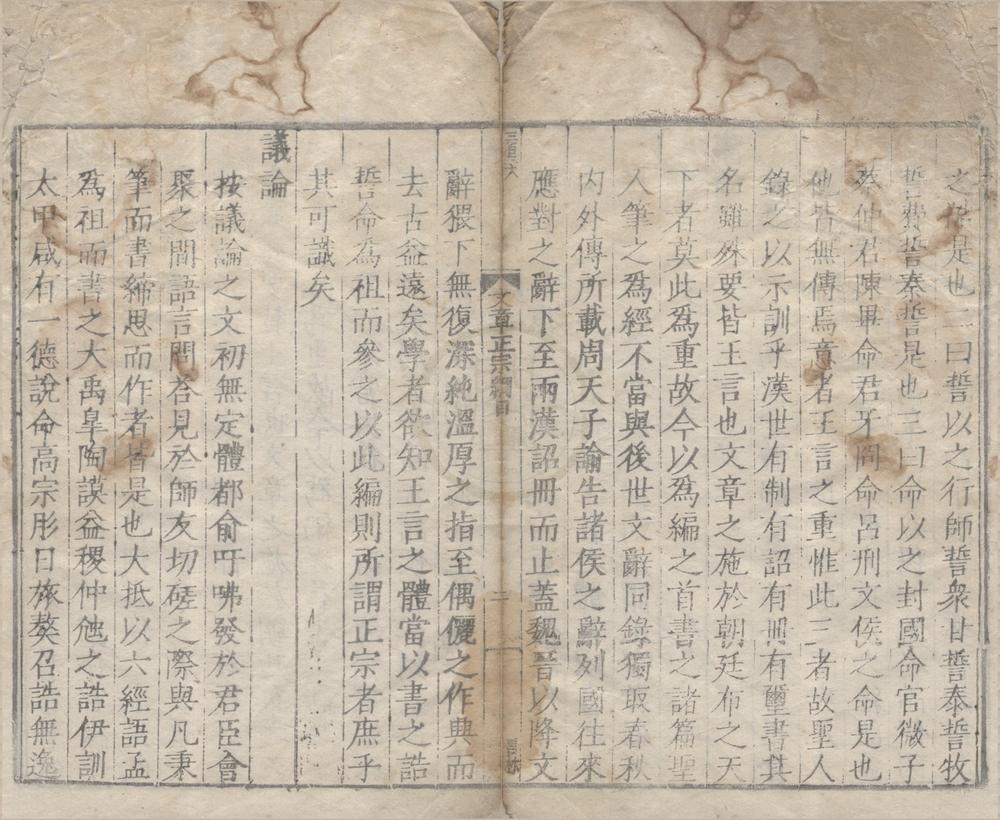 之誥是也二曰誓以之行師誓衆甘誓泰誓牧
誓費誓秦誓是也三曰命以之封國命官微子
蔡仲君陳畢命君牙冏命呂刑文侯之命是也
他皆無傳焉意者王言之重惟此三者故聖人
錄之以示訓乎漢世有制有詔有冊有璽書其
名雖殊要皆王言也文章之施於朝廷布之天
下者莫此爲重故今以爲編之首書之諸篇聖
人筆之爲經不當與後世文辭同錄獨取春秋
内外傳所載周天子諭告諸侯之辭列國往來
應對之辭下至兩漢詔冊而止蓋魏晉以降文
文章正宗綱目
二
辭猥下無復深純溫厚之指至偶儷之作興而
去古益遠矣學者欲知王言之體當以書之誥
誓命爲祖而參之以此編則所謂正宗者庶乎
其可識矣
議論
按議論之文初無定體都俞吁咈發於君臣會
聚之間語言問荅見於師友切磋之際與凡秉
筆而書締思而作者皆是也大抵以六經語孟
爲祖而書之大禹皋陶謨益稷仲虺之誥伊訓
太甲咸有一德說命高宗肜日旅獒召誥無逸